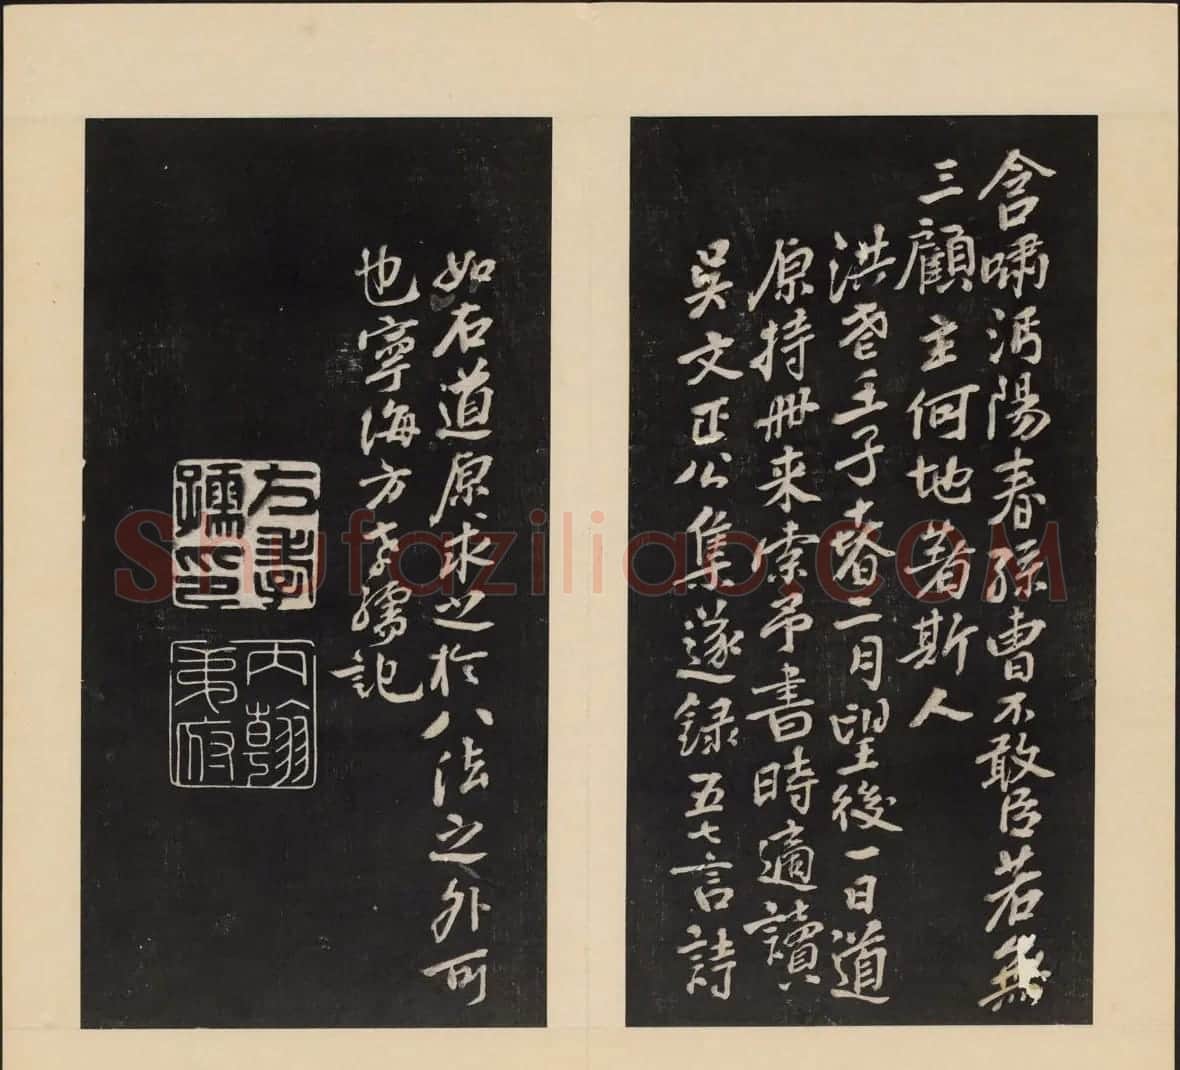 含嘯沔陽春孫曹不敢臣若無
三顧主何地著斯人
洪武壬子春二月望後一日道
原持冊来索予書時適讀
吳文正公集遂錄五七言詩
如右道原求之於八法之外可
也寧海方孝孺記
方孝孺印
内翰
shufaziliao.COM